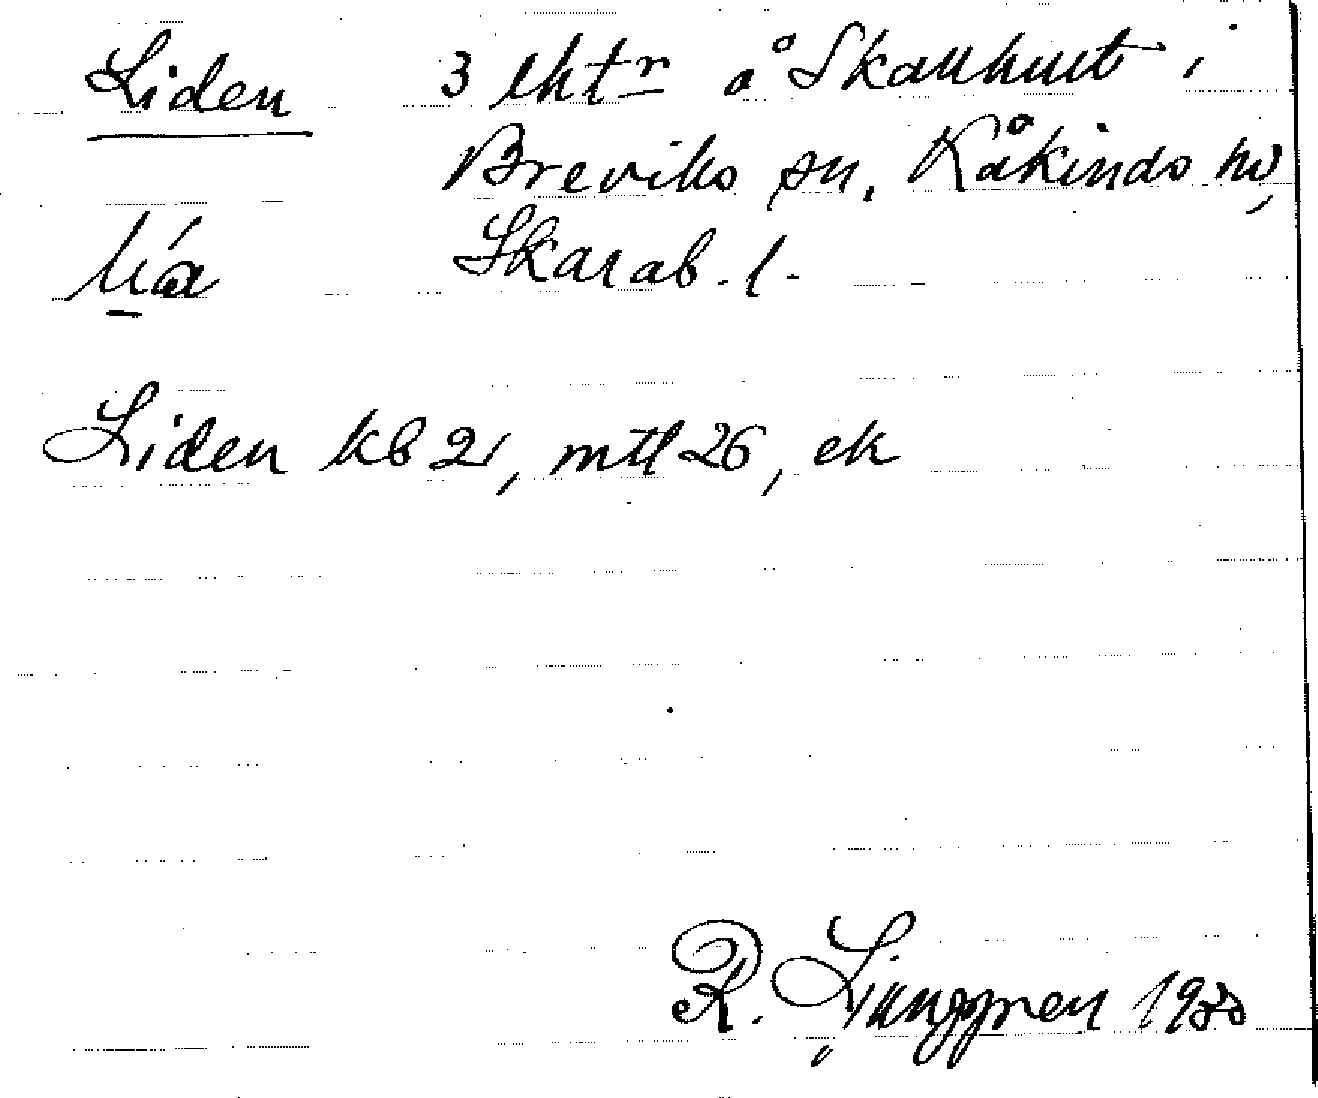 Liden 3 lht r å Skallhult i
Breviks sn, Kåkinds hd,
lia Skarab. l.
Liden kb 21, mtl 26, ek
R. Ljunggren 1930